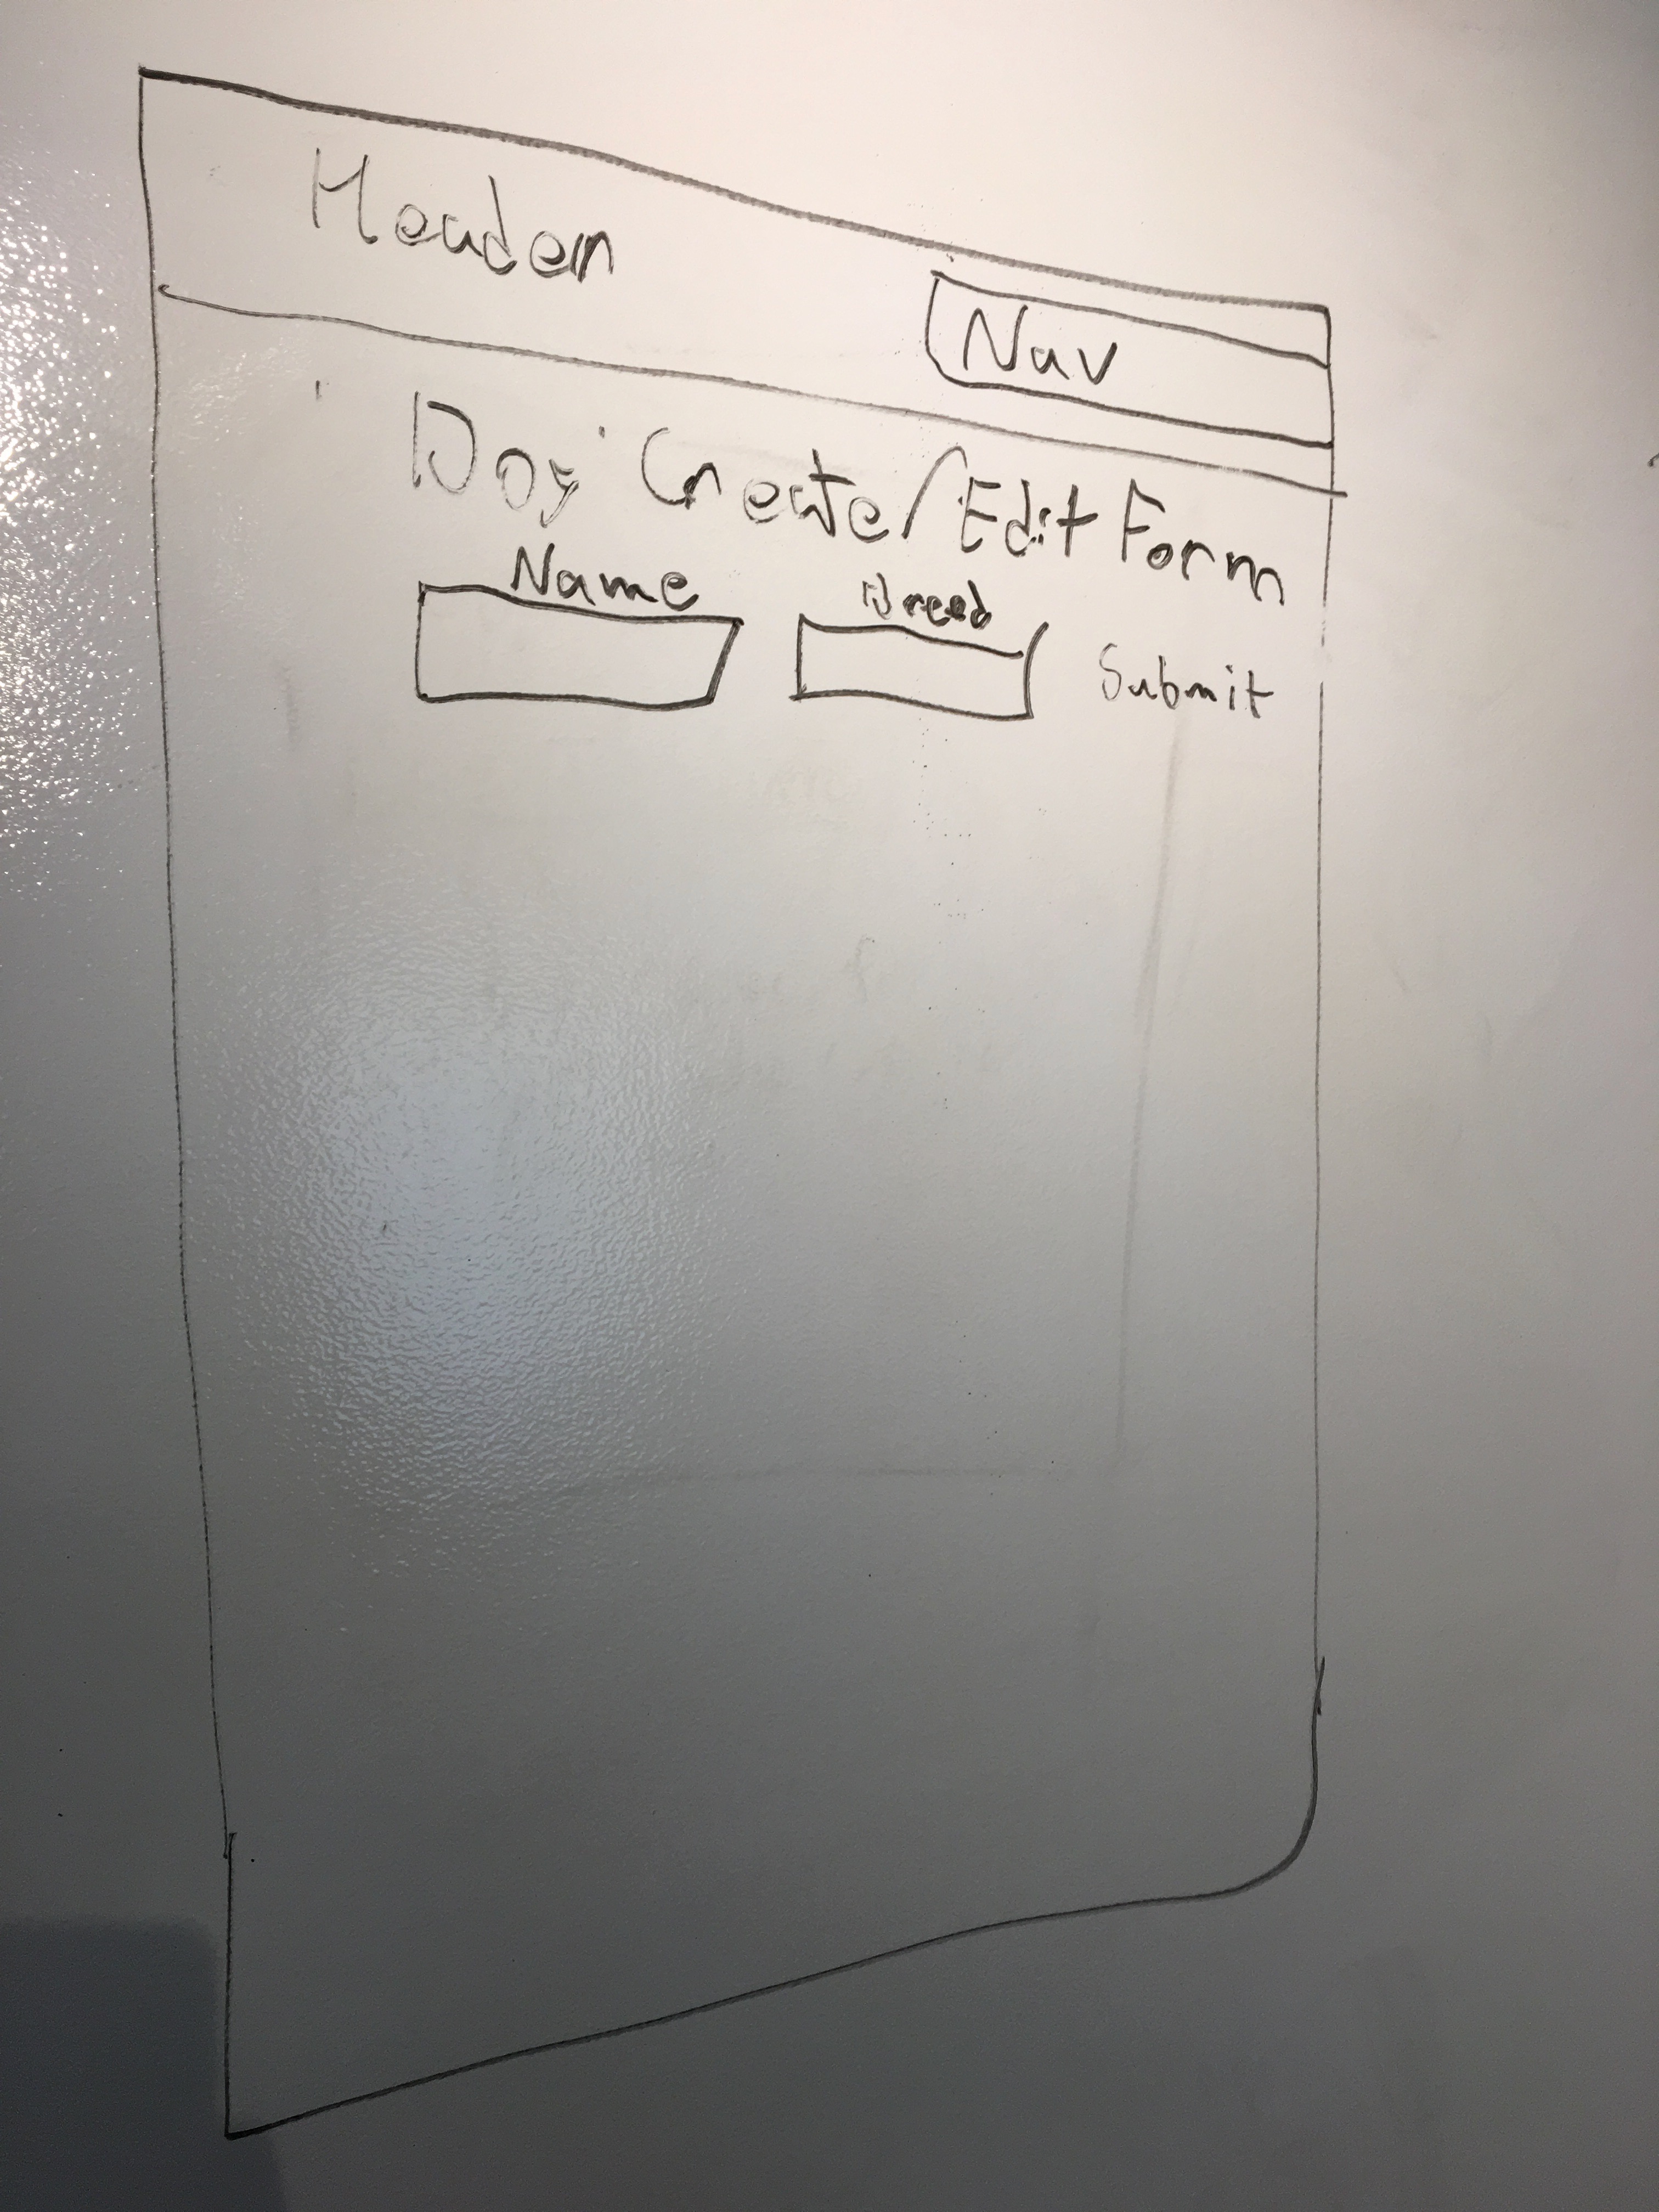 Header
Nav
Dog Create/Edit Form
Name
Breed
Submit